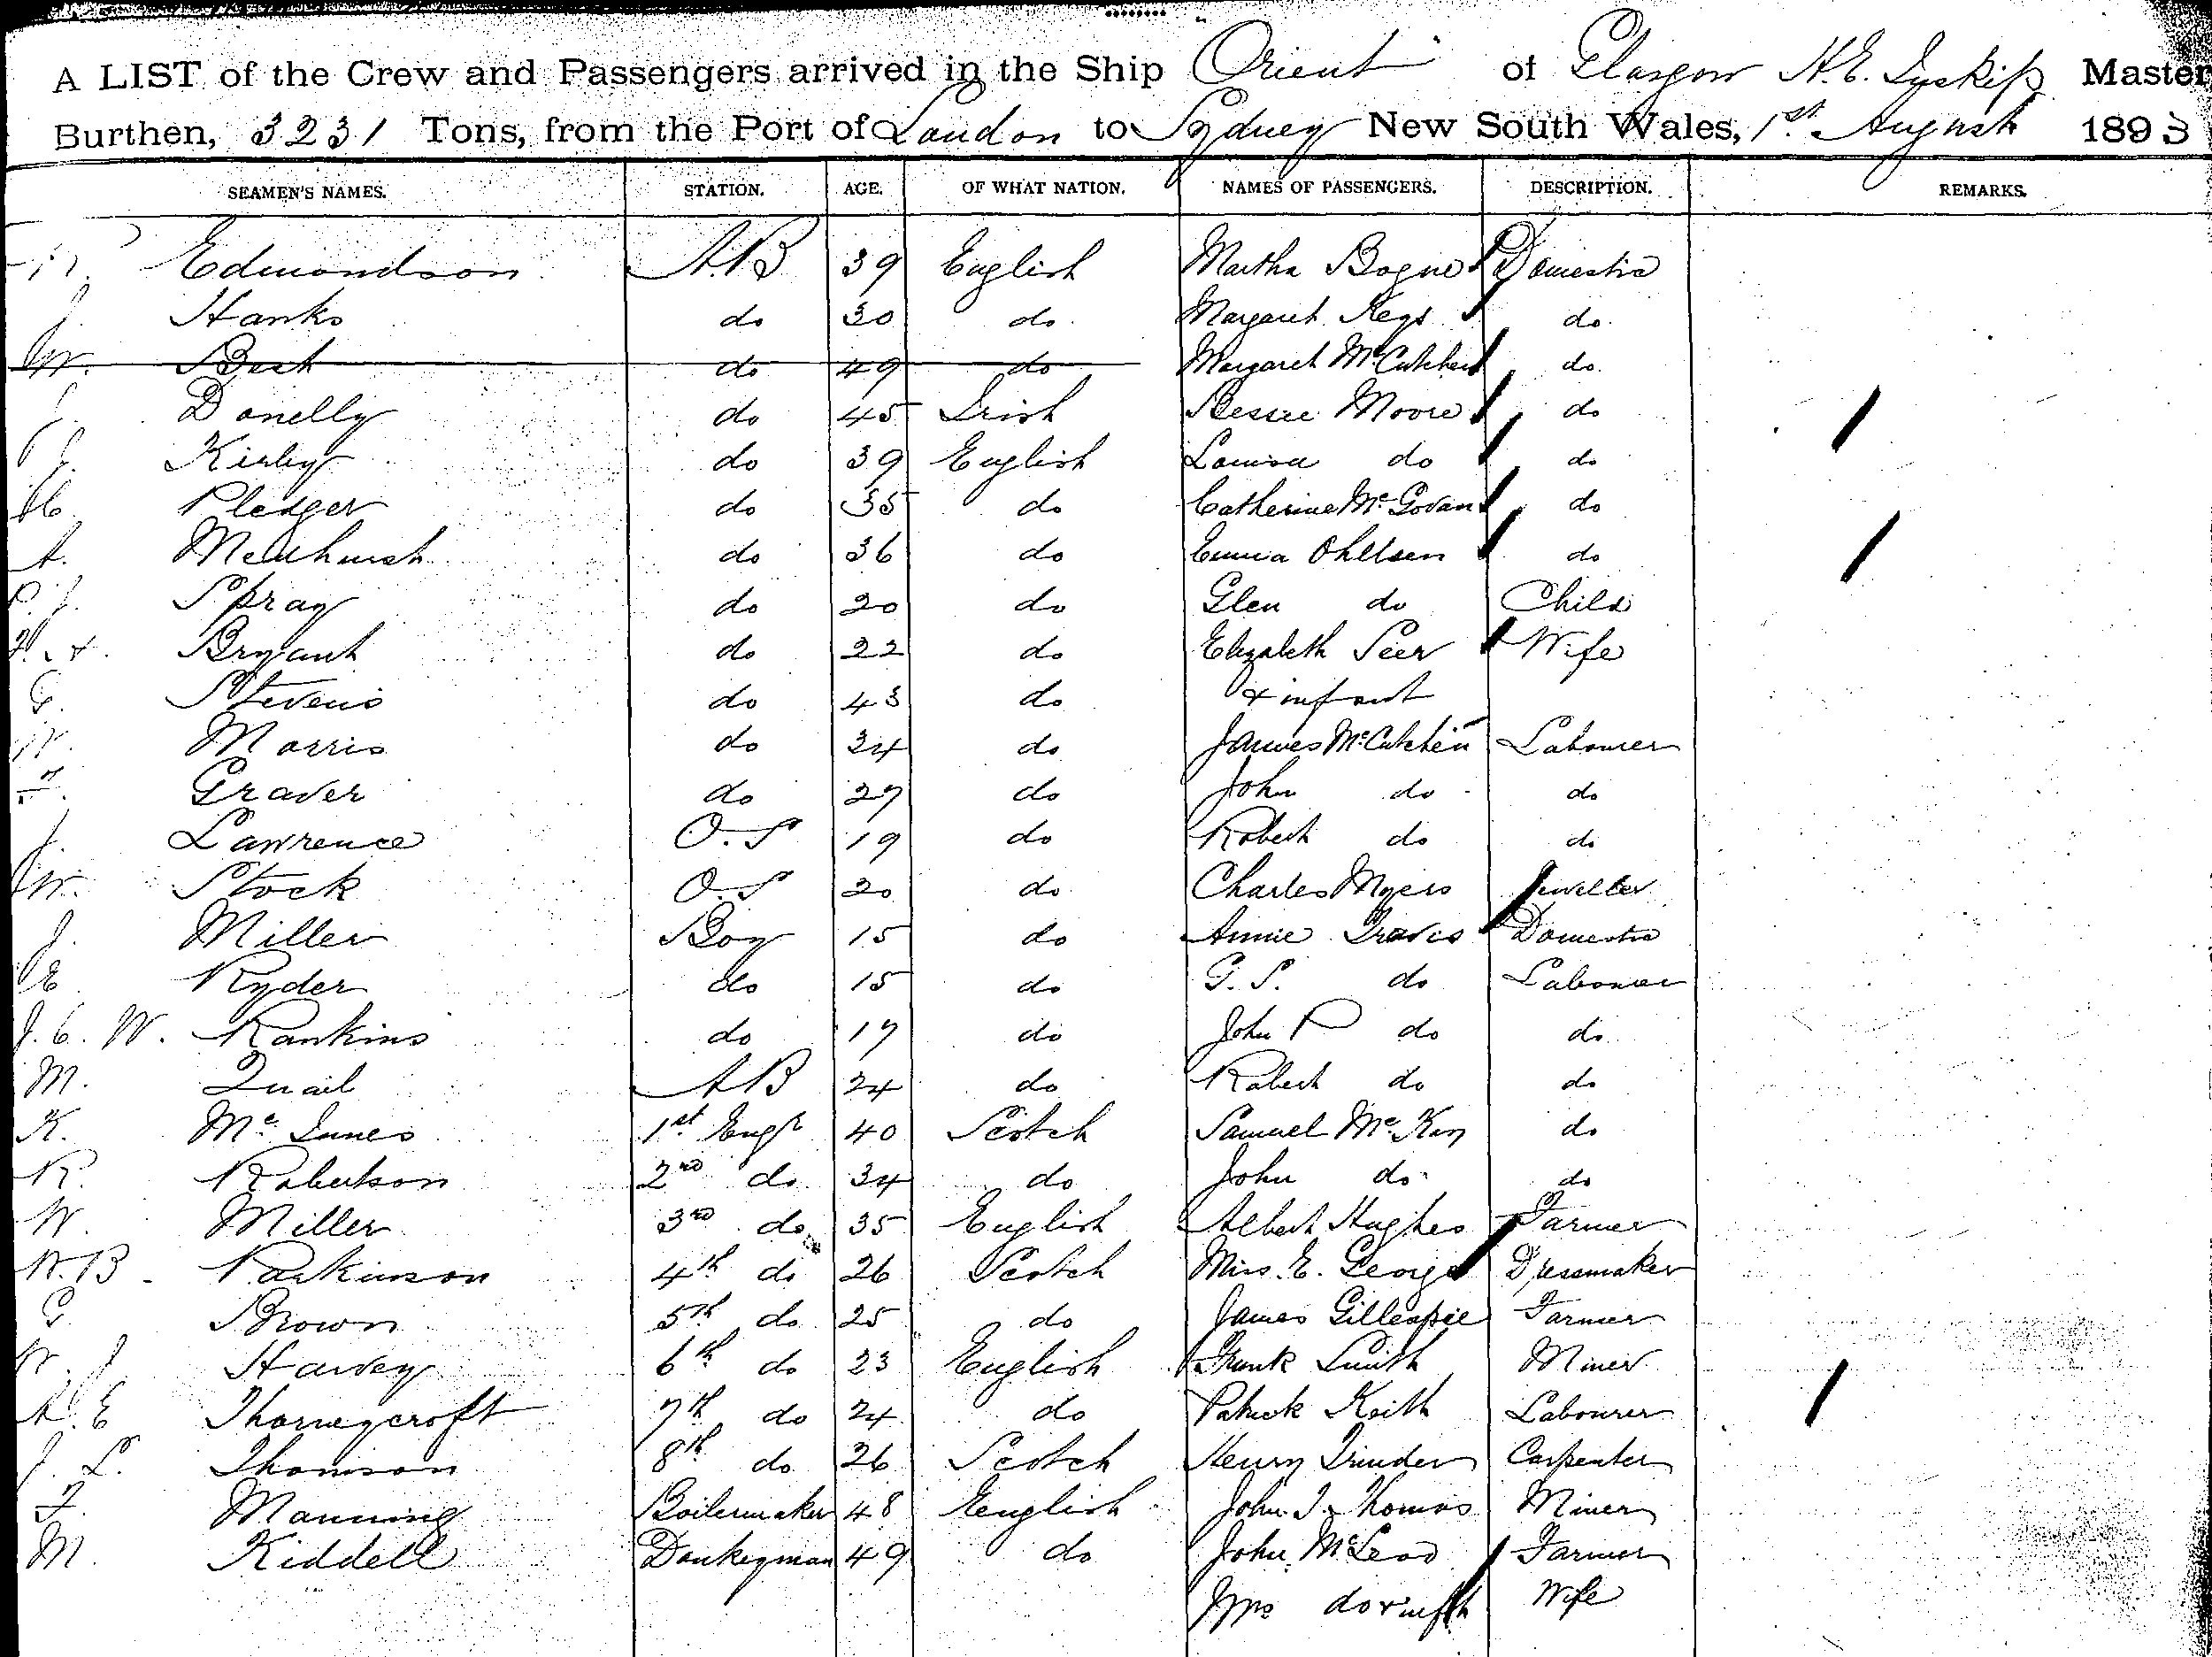 A LIST of the Crew and Passengers arrived in the Ship Orient of Glasgow H.E. Inskip Master
Burthen, 3231 Tons, from the Port of London to Sydney New South Wales, 1st August 1893
SEAMEN'S NAMES. STATION. AGE. OF WHAT NATION. NAMES OF PASSENGERS. DESCRIPTION. REMARKS.
Edmondson A.B 39 English Martha Domestic
J. Hanks do 30 do. Margaret Keys do.
W. do 49 do Margaret do.
Donelly do 45 Irish Bessie Moore do
J. Kirby do 39 English Louisa do do
Pledger do 35 do Catherine McGovan do
A. Medhurst do 36 do Emma Ohllsen do
Spray do 20 do Glen do Child
Bryant do 22 do Elizabeth Peer Wife
G. Stevens do 43 do + infant
W. Morris do 34 do James McCutchen Labourer
Graver do 27 do John do do
J. Lawrence O.S 19 do Robert do do
W. Stock O.S 20 do Charles Myers Jeweller
J. Miller Boy 15 do Annie Travis Domestic
E Ryder do 15 do G. S. do Labourer
J. C. W. Rankins do 17 do John P do do
M. Quail AB 24 do Robert do do
K. Mc Innes 1st Engr 40 Scotch Samuel McKay do
R. Robertson 2nd do 34 do John do do
W. Miller 3rd do 35 English Albert Hughes Farmer
W.B. Parkinson 4th do 26 Scotch Miss. E. George Dressmaker
G Brown 5th do 25 do James Gillespie Farmer
W. J Harvey 6th do 23 English Frank Smith Miner
A. E Thorneycroft 7th do 24 do Patrick Keith Labourer
J. L. Thomson 8th do 26 Scotch Henry Trinder Carpenter
F. Manning Boilermaker 48 English John J. Thomas Miner
M. Kiddell Donkeyman 49 do John McLeod Farmer
Mrs do + inft Wife